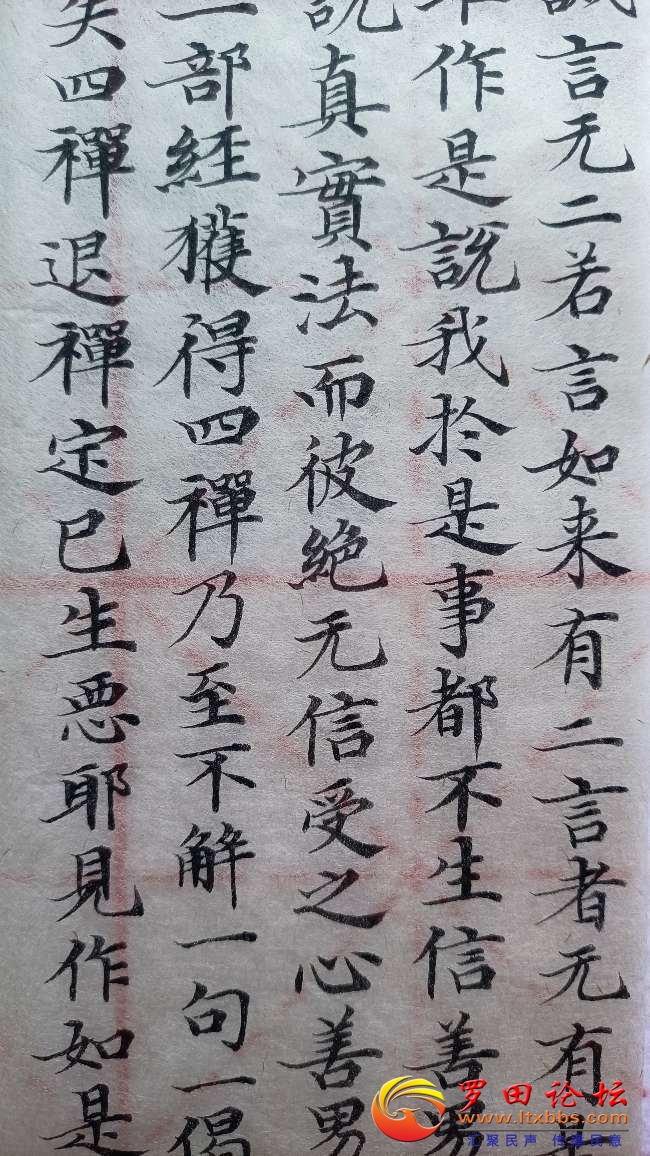 誠言无二若言如来有二言者无有是
作是說我扵是事都不生信善男
說真實法而彼絶无信受之心善男
一部経獲得四禪乃至不解一句一偈
失四禪退禪定已生悪耶見作如是
罗田论坛
www.ltxbbs.com
汇聚民声 传播民意